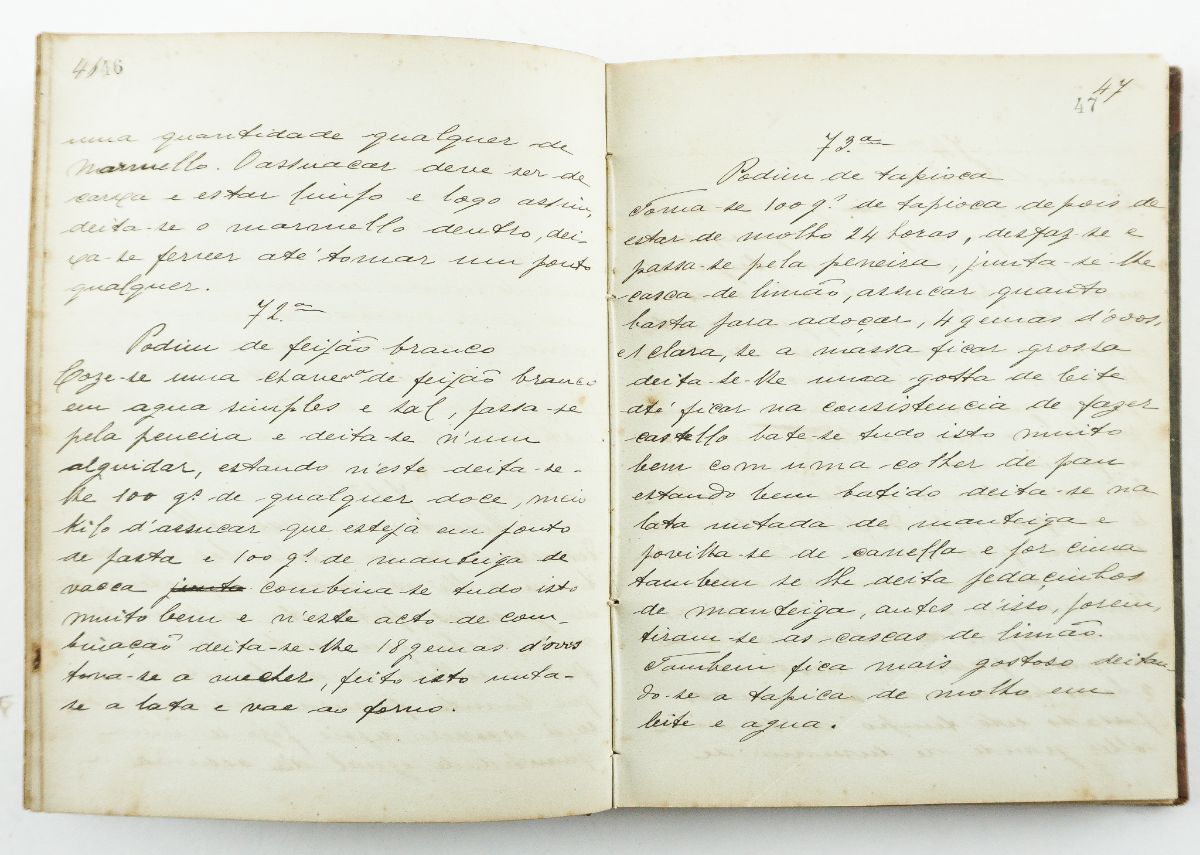 46 46
uma quantidade qualquer de
marmello. O assucar deve ser de
caroça e estar limpo e logo assim,
deita-se o marmello dentro, dei-
xa-se ferver até tomar um ponto
qualquer.
72.ª
Podim de feijão branco
Coze-se uma chavenª de feijão branco
em agua simples e sal, passa-se
pela peneira e deita-se n'um
alguidar, estando n'este deita-se-
lhe 100 gº de qualquer doce, meio
kilo d'assucar que esteja em ponto
de pasta e 100 gº de manteiga de
vacca junta combina-se tudo isto
muito bem e n'este acto de com-
binação deita-se-lhe 18 gemas d'ovos
torna-se a mecher, feito isto unta-
se a lata e vae ao forno.
47
47
73.ª
Podim de tapioca
Toma-se 100 gº de tapioca depois de
estar de molho 24 horas, desfaz-se e
passa-se pela peneira, junta-se-lhe
casca de limão, assucar quanto
basta para adoçar, 4 gemas d'ovos,
e 1 clara, se a massa ficar grossa
deita-se-lhe uma gotta de leite
até ficar na consistencia de fazer
castello bate-se tudo isto muito
bem com uma colher de pau
estando bem batido deita-se na
lata untada de manteiga e
povilha-se de canella e por cima
tambem se lhe deita pedaçinhos
de manteiga, antes d'isso, porem,
tiram-se as cascas de limão.
Tambem fica mais gostoso deitan
do-se a tapica de molho em
leite e agua.